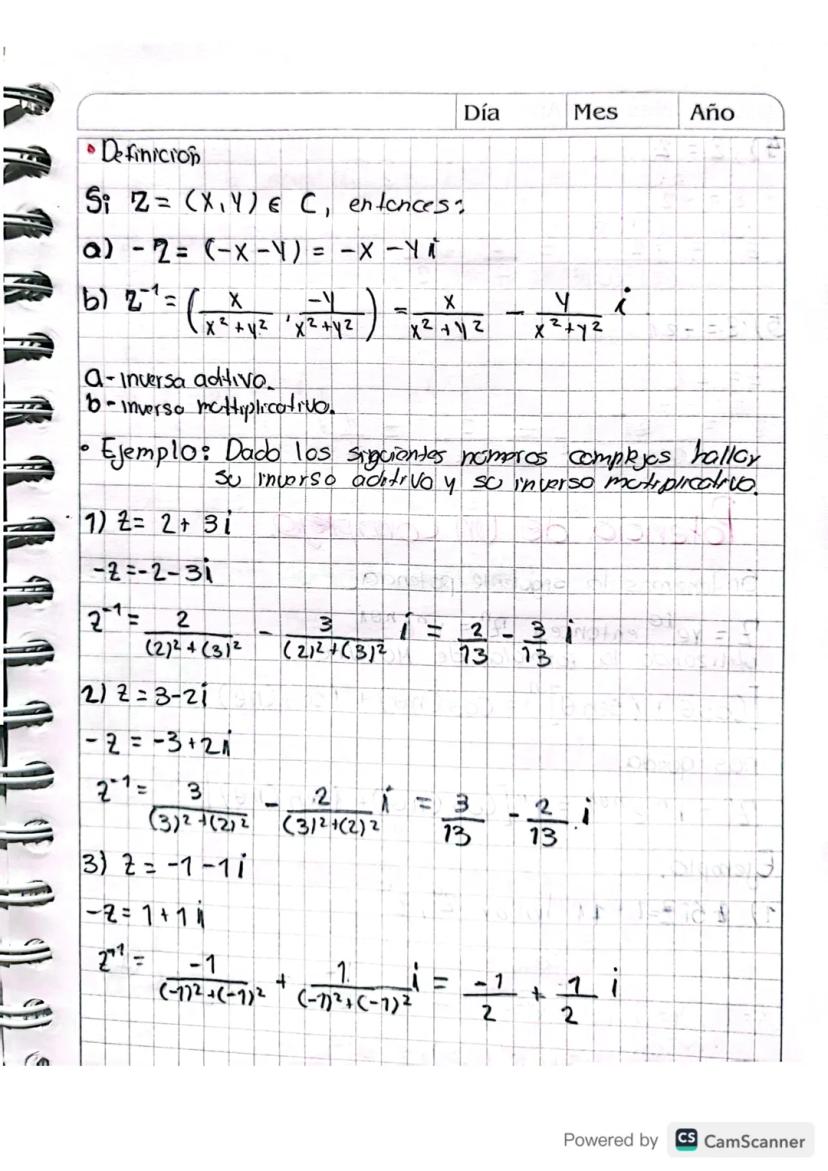 Día Mes Año
• Definición
Si Z = (X,Y) ∈ C, entonces:
a) - Z = (-X - Y) = -X - Y i
b) Z⁻¹ = (x/(x²+y²), -y/(x²+y²)) = x/(x²+y²) - y/(x²+y²) i
a - inversa aditivo.
b - inverso multiplicativo.
• Ejemplo: Dado los siguientes números complejos hallar
su inverso aditivo y su inverso multiplicativo.
1) Z = 2 + 3i
-Z = -2 - 3i
Z⁻¹ = 2/((2)²+(3)²) - 3/((2)²+(3)²) i = 2/13 - 3/13 i
2) Z = 3-2i
-Z = -3+2i
Z⁻¹ = 3/((3)²+(2)²) - 2/((3)²+(2)²) i = 3/13 - 2/13 i
3) Z = -1 - 1i
-Z = 1 + 1i
Z⁻¹ = -1/((-1)²+(-1)²) + 1/((-1)²+(-1)²) i = -1/2 + 1/2 i
Powered by CS CamScanner